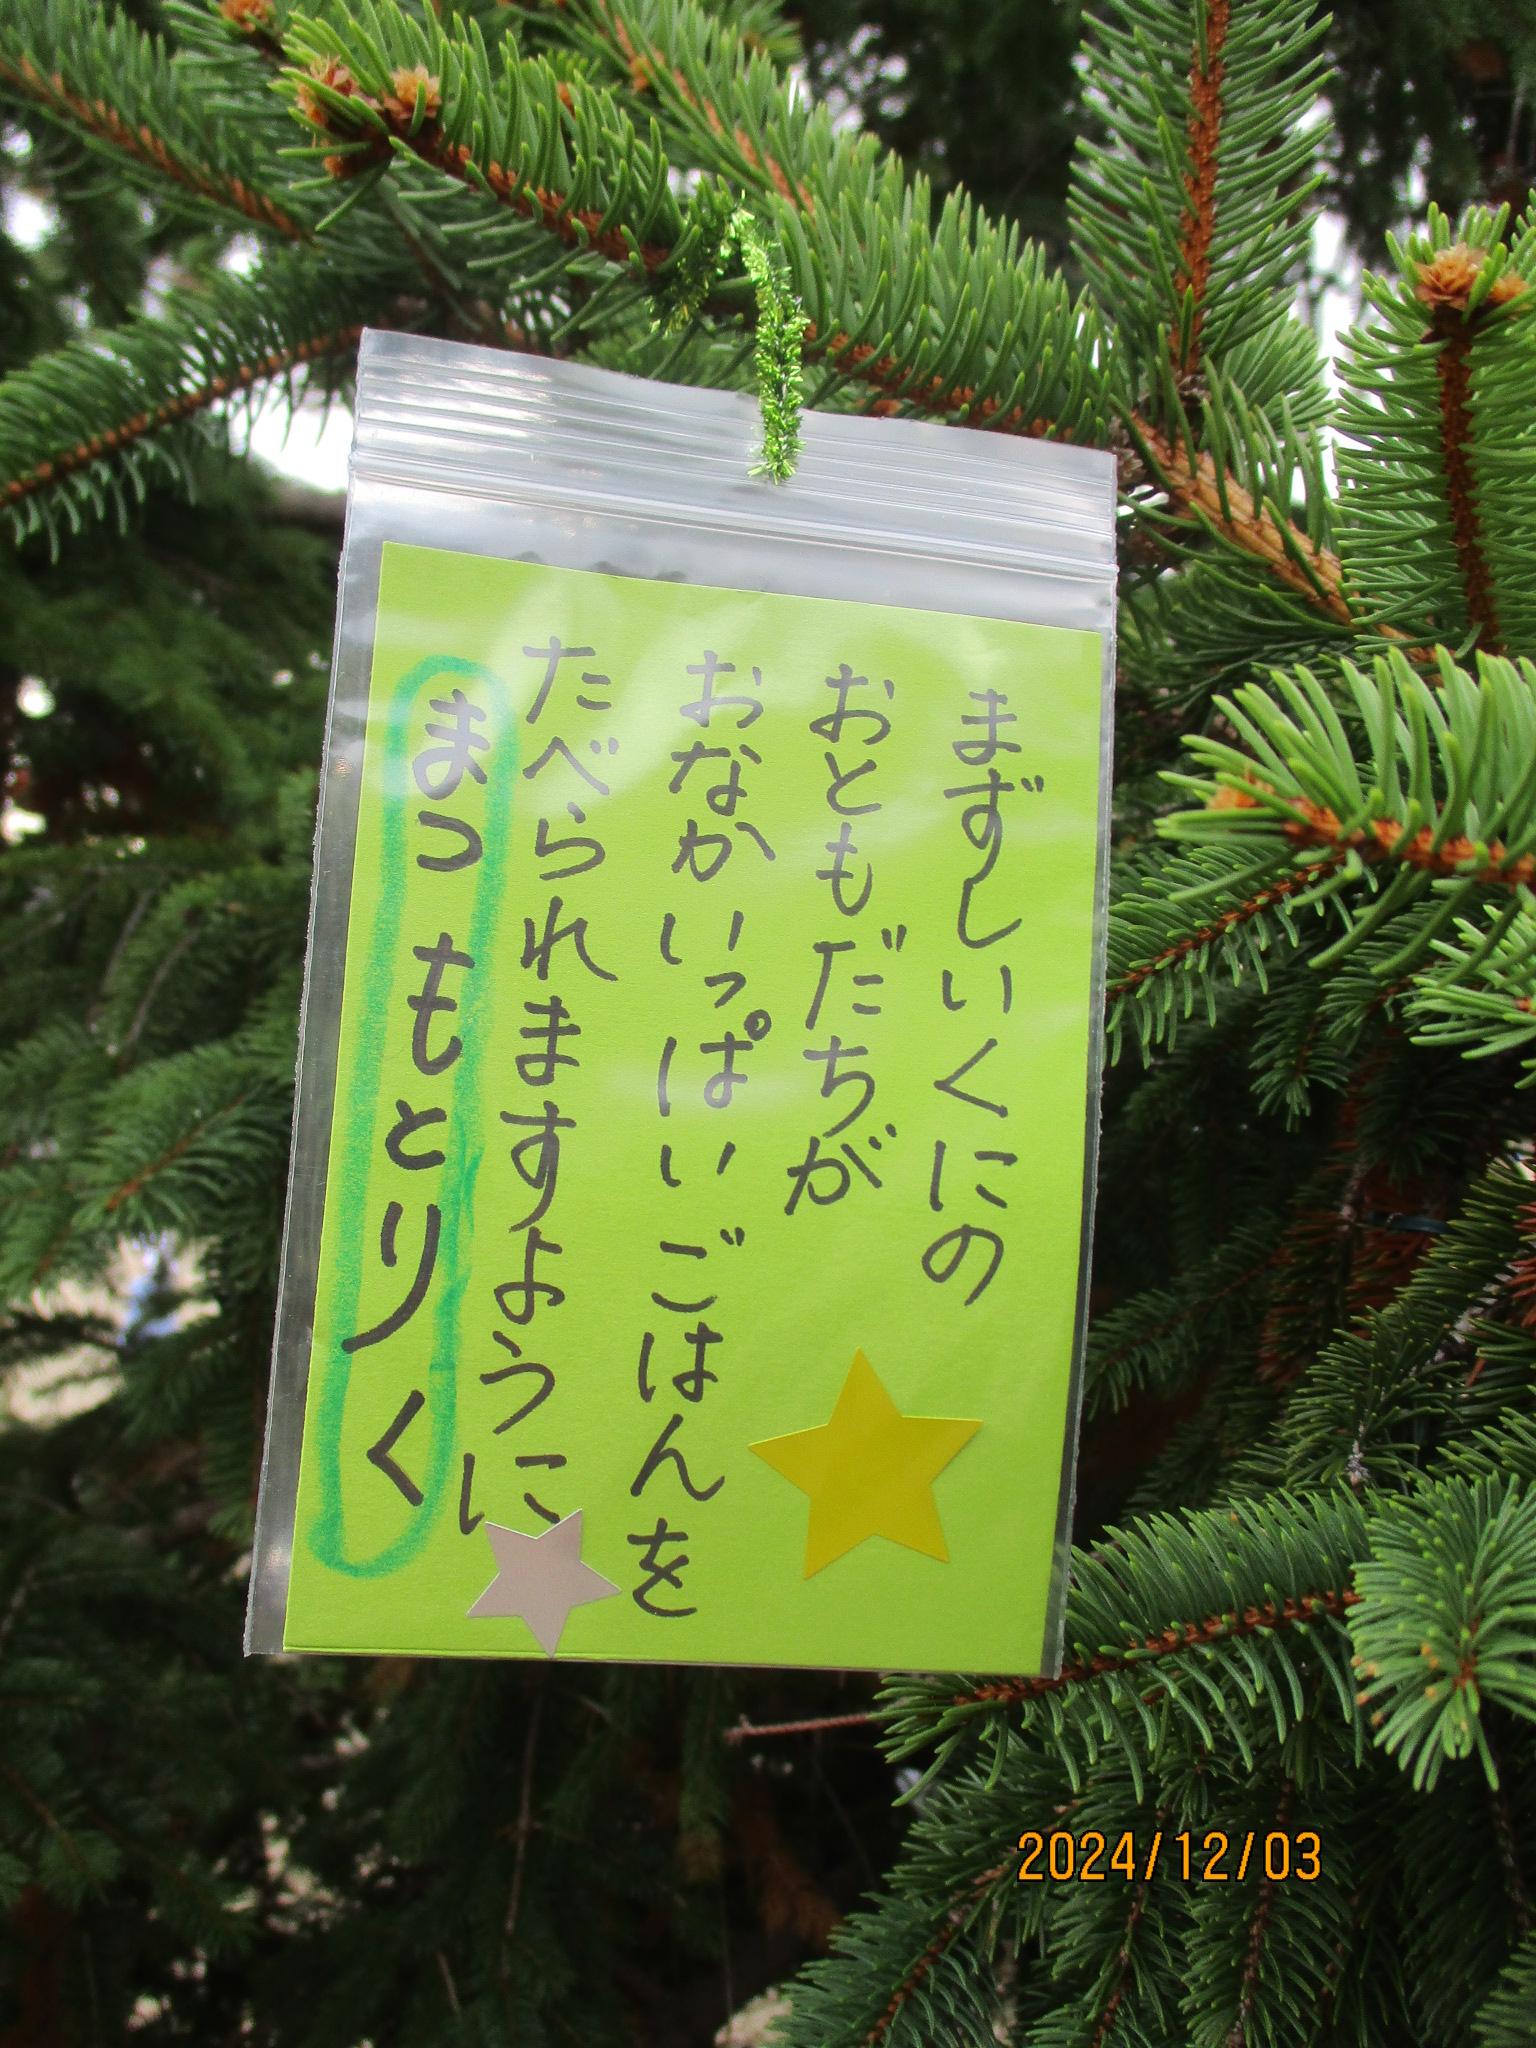 まずしいくにの
おともだちが
おなかいっぱいごはんを
たべられますように
まつもとりく
2024/12/03